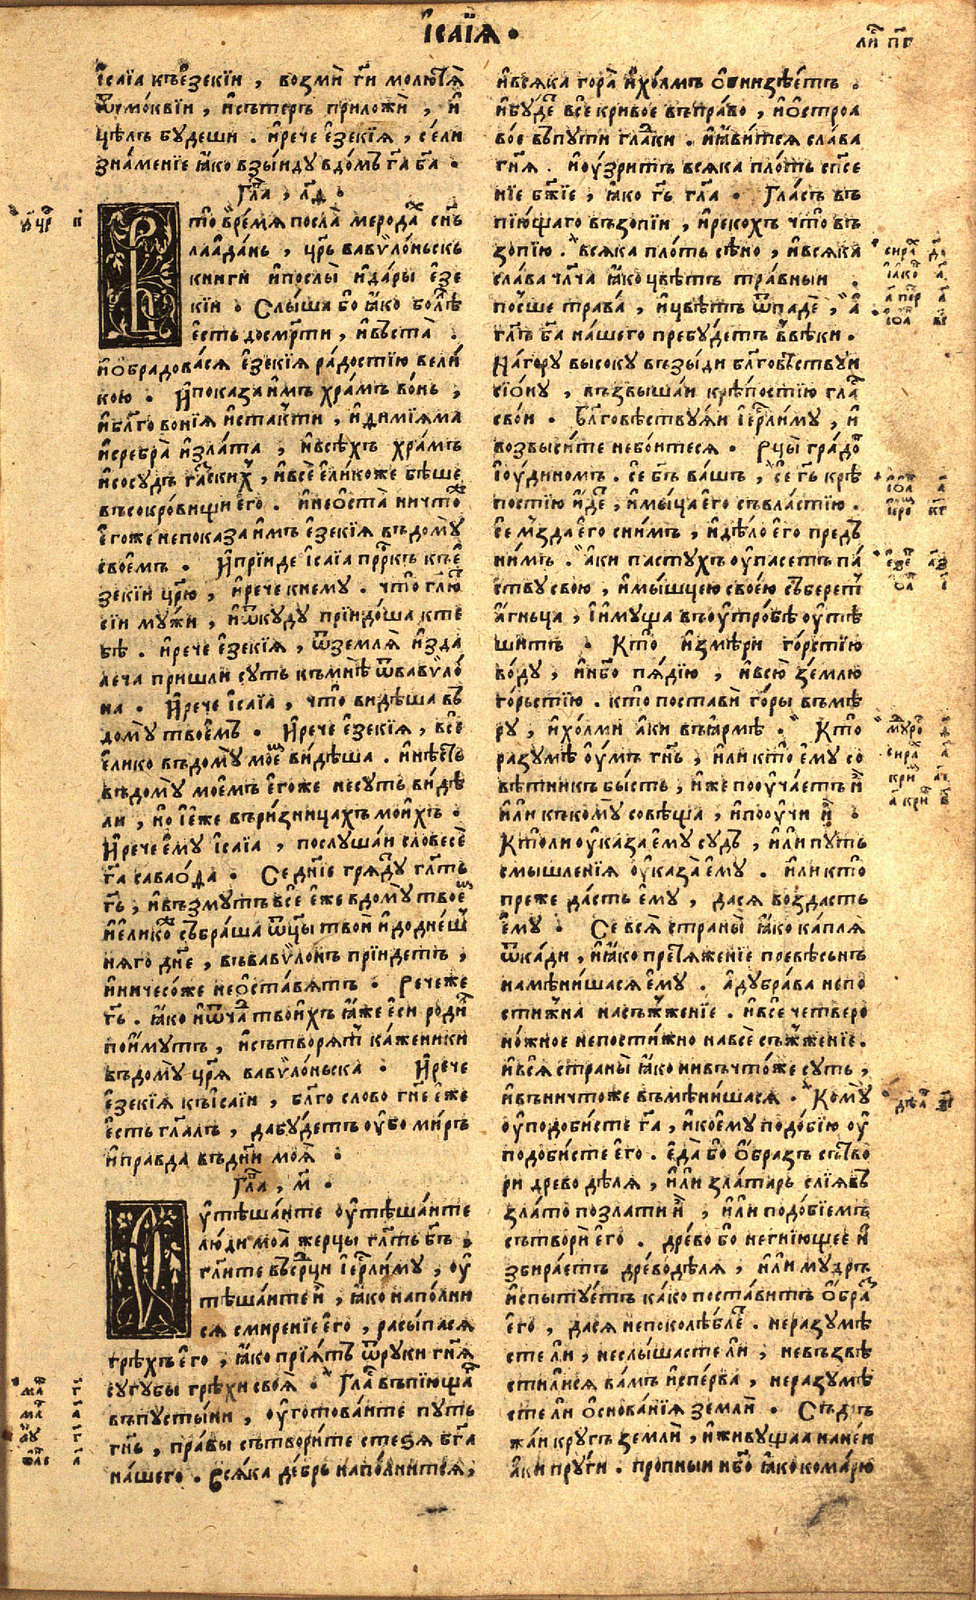 І҆саїѧ .
ли́ст пв
і҆саїа къе҆зекїи , возмѝ ѿ смо́квїи , и҆сътеръ приложѝ , и҆
цѣлъ бꙋдеши . и҆рече е҆зекїѧ , сели
знаменїе ꙗ҆ко взы́идꙋ вдомъ гⷭ҇а бг҃а .
Гла҃ , л҃ѳ .
то̀ вре́мѧ посла̀ меродаⷯ сн҃ъ
лаа́данъ , цр҃ь вавѷло́ньскъ
книги и҆послы̀ и҆да́ры е҆зе
кїи . Слы́ша бо ꙗ҆ко болѣ̀
є҆сть досме́рти , и҆въста̀ .
и҆ѻ҆бра́довасѧ е҆зекїѧ ра́достїю вели́
кою . И҆показа и҆мъ хра́мъ во́нь ,
и҆бл҃го вонїѧ и҆ста́кти , и҆дими́ѧма
и҆сребра̀ и҆зла́та , и҆всѣ́хъ храмъ
и҆сосꙋдъ га́зскихъ , и҆всѐ е҆ли́коже бѣ́ше
въсокро́вищи е҆го̀ . и҆неѻ҆ста̀ ничто́ж
е҆гоже непоказа и҆мъ е҆зекїѧ въдо́мꙋ
свое́мъ . И҆прїи́де і҆саїа прⷪ҇ркъ къе҆
зекїи цр҃ю , и҆рече кнемꙋ . что̀ гл҃ю
сїи мꙋ́жи , и҆ѿкꙋдꙋ прїидо́ша кте
бѣ . и҆рече е҆зекїѧ , ѿземлѧ̀ и҆зда
леча пришли сꙋть къмнѣ̀ ѿвавѷло́
на . И҆рече і҆саїа , что̀ ви́дѣша въ
домꙋ̀ твое́мъ . И҆рече е҆зекїѧ , всѐ
е҆ли́ко въдо́мꙋ моеⷨ ви́дѣша . и҆нѣ́сть
въдо́мꙋ мое́мъ е҆гоже несꙋть ви́дѣ
ли , но і҆е҆же въри́зницахъ мои́хъ .
И҆рече е҆мꙋ і҆саїа , послꙋ́шаи словесѐ
гⷭ҇а саваѻ́ѳа . Седнїе грѧдꙋ́ гл҃тъ
гⷭ҇ь , и҆възмꙋтъ всѐ е҆же вдомꙋ̀ твоеⷨ
и҆е҆лико събра́ша ѿцы̀ твоѝ и҆додне́ш
нѧго дн҃е , въвавѷло́нъ прїи́детъ ,
и҆ничесо́же неѻ҆ста́вѧтъ . Рече́же
гⷭ҇ь . ꙗ҆ко и҆ѿчаⷣ твои́хъ ꙗ҆же е҆си роди́
по́имꙋтъ , и҆сътворѧ́т ка́женики
въдомꙋ цр҃ѧ вавѷло́ньска . И҆рече
е҆зекїѧ къі҆саїи , бл҃го слово гн҃е е҆же
є҆сть гл҃алъ , дабꙋ́детъ ᲂу҆бо ми́ръ
и҆правда въдни̑ моѧ̀ .
Гла҃ , м҃ .
ᲂу҆тѣша́ите ᲂу҆тѣша́ите
лю́ди моѧ̀ жерцы̀ гл҃тъ бг҃ъ .
гл҃ите въсе́рдци і҆ерⷭ҇ли́мꙋ , ᲂу҆
тѣша́ите и҆ , ꙗ҆ко напо́лни
сѧ смире́нїе е҆го̀ , расы́пасѧ
грѣ́хъ е҆го̀ , ꙗ҆ко прїѧ́тъ ѿрꙋки гн҃ѧ
сꙋгꙋ́бы грѣ́хи своѧ̀ . Гла́съ въпїю́щаⷢ
въпꙋсты́ни , ᲂу҆гото́ваите пꙋть
гн҃ь , пра́вы сътвори́те стеѕѧ бг҃а
на́шего . Всѧ́ка де́брь напо́лнитсѧ ,
и҆всѧка гора̀ и҆хо́лмъ
и҆бꙋ́дет всѐ кривое въпра́во , и҆ѻ҆строа
во́е въпꙋти гла́дки . и҆ꙗ҆ви́тсѧ слава
гн҃ѧ . и҆ᲂу҆зри́тъ всѧка пло́ть сп҃се
нїе бж҃їе , ꙗ҆ко гⷭ҇ь гла . Гла́съ въ
пїю́щаго възопїи , и҆реко́хъ что̀ въ
зопїю̀ . всѧка пло́ть сѣ́но , и҆всѧка
сла́ва чл҃ча ꙗ҆ко цвѣ́тъ тра́вныи .
по́сше трава̀ , и҆цвѣ́тъ ѿпадѐ , а҆
гл҃ъ бг҃а на́шего пребꙋ́детъ въвѣ́ки .
На́горꙋ высо́кꙋ възы́ди бл҃говѣ́ствꙋи
сїо́нꙋ , възвыша́и крѣ́постїю гла́с
свои . Бл҃говѣ́ствꙋѧи і҆ерⷭ҇ли́мꙋ , и҆
возвы́сите небо́итесѧ . Рцы̀ гра́доⷨ
і҆ю́диномъ . се бг҃ъ ва́шъ , се гⷭ҇ь крѣ́
постїю и҆дет , и҆мы́шца е҆го съвла́стїю .
се мъзда̀ е҆го сни́мъ , и҆дѣ́ло е҆го предъ
ни́мъ . а҆ки па́стꙋхъ ᲂу҆пасетъ па́
ствꙋ свою , и҆мы́шцею своею събере́т
а҆гньца , и҆и҆мꙋща въᲂу҆тро́бѣ ᲂу҆тѣ
шитъ . Кто̀ и҆змѣ́ри го́рстїю
во́дꙋ , и҆не́бо пѧ́дїю , и҆всю зе́млю
го́рьстїю . кто̀ поста́ви го́ры въмѣ́
рꙋ , и҆хо́лми а҆ки въꙗ҆рмѣ . Кто̀
разꙋмѣ̀ ᲂу҆́мъ гн҃ь , и҆ли кто̀ е҆мꙋ со
вѣтникъ бы́сть , и҆же поᲂу҆ча́етъ и҆
и҆ли къко́мꙋ совѣща , и҆поᲂу҆чи и҆ .
Кто́ли ᲂу҆каза е҆мꙋ сꙋ́дъ , и҆ли пꙋ́ть
смышле́нїѧ ᲂу҆каза̀ е҆мꙋ . и҆ли кто̀
преже да́сть е҆мꙋ , дасѧ возда́сть
е҆мꙋ . Се всѧ̀ страны̀ ꙗ҆ко ка́плѧ
ѿка́ди , и҆ꙗ҆ко претѧже́нїе превѣсьнъ
намѣ́нишасѧ е҆мꙋ . а҆дꙋбра́ва непо
сти́жна насъжже́нїе . и҆всѐ четверо
но́жное непости́жно навсѐ съжже́нїе .
и҆всѧ̀ страны̀ ꙗ҆ко нивъчто́же сꙋть ,
и҆въничто́же въмѣни́шасѧ . Комꙋ̀
ᲂу҆подо́бисте гⷭ҇а , и҆ко́емꙋ подо́бїю ᲂу҆
подо́бисте е҆го . е҆да̀ бо ѻ҆́бразъ сътво
ри древодѣлѧ , и҆ли зла́таръ слїѧ́въ
зла́то позлати и҆ , и҆ли подо́бїемъ
сътворѝ е҆го . дре́во бо негнїю́щее и҆
збира́етъ древодѣ́лѧ , и҆ли мꙋ́дръ
и҆спытꙋ́етъ ка́ко поста́витъ ѻ҆браⷥ
е҆го̀ , дасѧ непоколѣблеⷮ . неразꙋмѣ́
сте ли , неслы́шасте ли , невъзвѣ
сти́лисѧ ва́мъ и҆спе́рва , неразꙋмѣ́
сте ли ѻ҆снова́нїѧ земли̑ . Съдрь
жа́и крꙋ́гъ земли̑ , и҆живꙋщаа нане́и
а҆ки прꙋ́ги . пропныи не́бо ꙗ҆ко кома́рꙋ